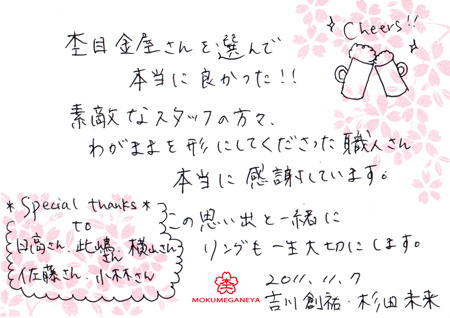 Cheers!!
杢目金屋さんを選んで
本当に良かった!!
素敵なスタッフの方々、
わがままを形にしてくださった職人さん
本当に感謝しています。
この思い出と一緒に
リングも一生大切にします。
*Special thanks*
to
日高さん、此嶋さん、横山さん
佐藤さん、小林さん
2011.11.7
吉川創祐・杉田未来
MOKUMEGANEYA